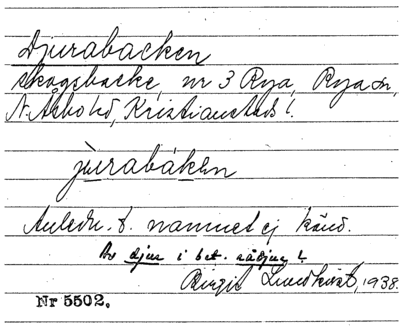 Djurabacken
skogsbacke, nr 3 Rya, Rya sn,
N. Åsbo hd, Kristianstads l.
jùrabáken
Anledn. t. namnet ej känd.
Av djur i bet. rådjur?
Birgit Lundkvist, 1938.
Nr 5502.